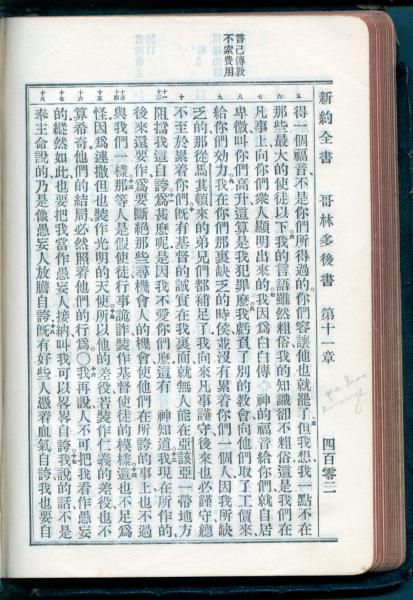 新約全書 哥林多後書 第十一章 四百零二
言己傳教
不索費用
得一個福音不是你們所得過的、你們容讓他也就罷了、但我想、我一點不在
那些最大的使徒以下、我的言語雖然粗俗、我的知識卻不粗俗、這是我們在
凡事上向你們衆人顯明出來的、我因爲白白傳 神的福音給你們、就自居
卑微、叫你們高升、這算是我犯罪麽、我虧負了別的教會、向他們取了工價來、
給你們効力、我在你們那裏缺乏的時候、並沒有累着你們一個人、因我所缺
乏的、那從馬其頓來的弟兄們都補足了、我向來凡事謹守、後來也必謹守、總
不至於累着你們、旣有基督的誠實在我裏面、就無人能在亞該亞一帶地方
阻擋我這自誇、爲甚麽呢、是因我不愛你們麽、這有 神知道、我現在所作的、
後來還要作、爲要斷絕那些尋機會人的機會、使他們在所誇的事上、也不過
與我們一樣、那等人是假使徒、行事詭詐、裝作基督使徒的模樣、這也不足爲
怪、因爲連撒但也裝作光明的天使、所以他的差役、若裝作仁義的差役、也不
算希奇、他們的結局、必然照着他們的行爲○我再說、人不可把我看作愚妄
的、縱然如此、也要把我當作愚妄人接納、叫我可以畧畧自誇、我說的話、不是
奉主命說的、乃是像愚妄人放膽自誇、旣有好些人憑着血氣自誇、我也要自